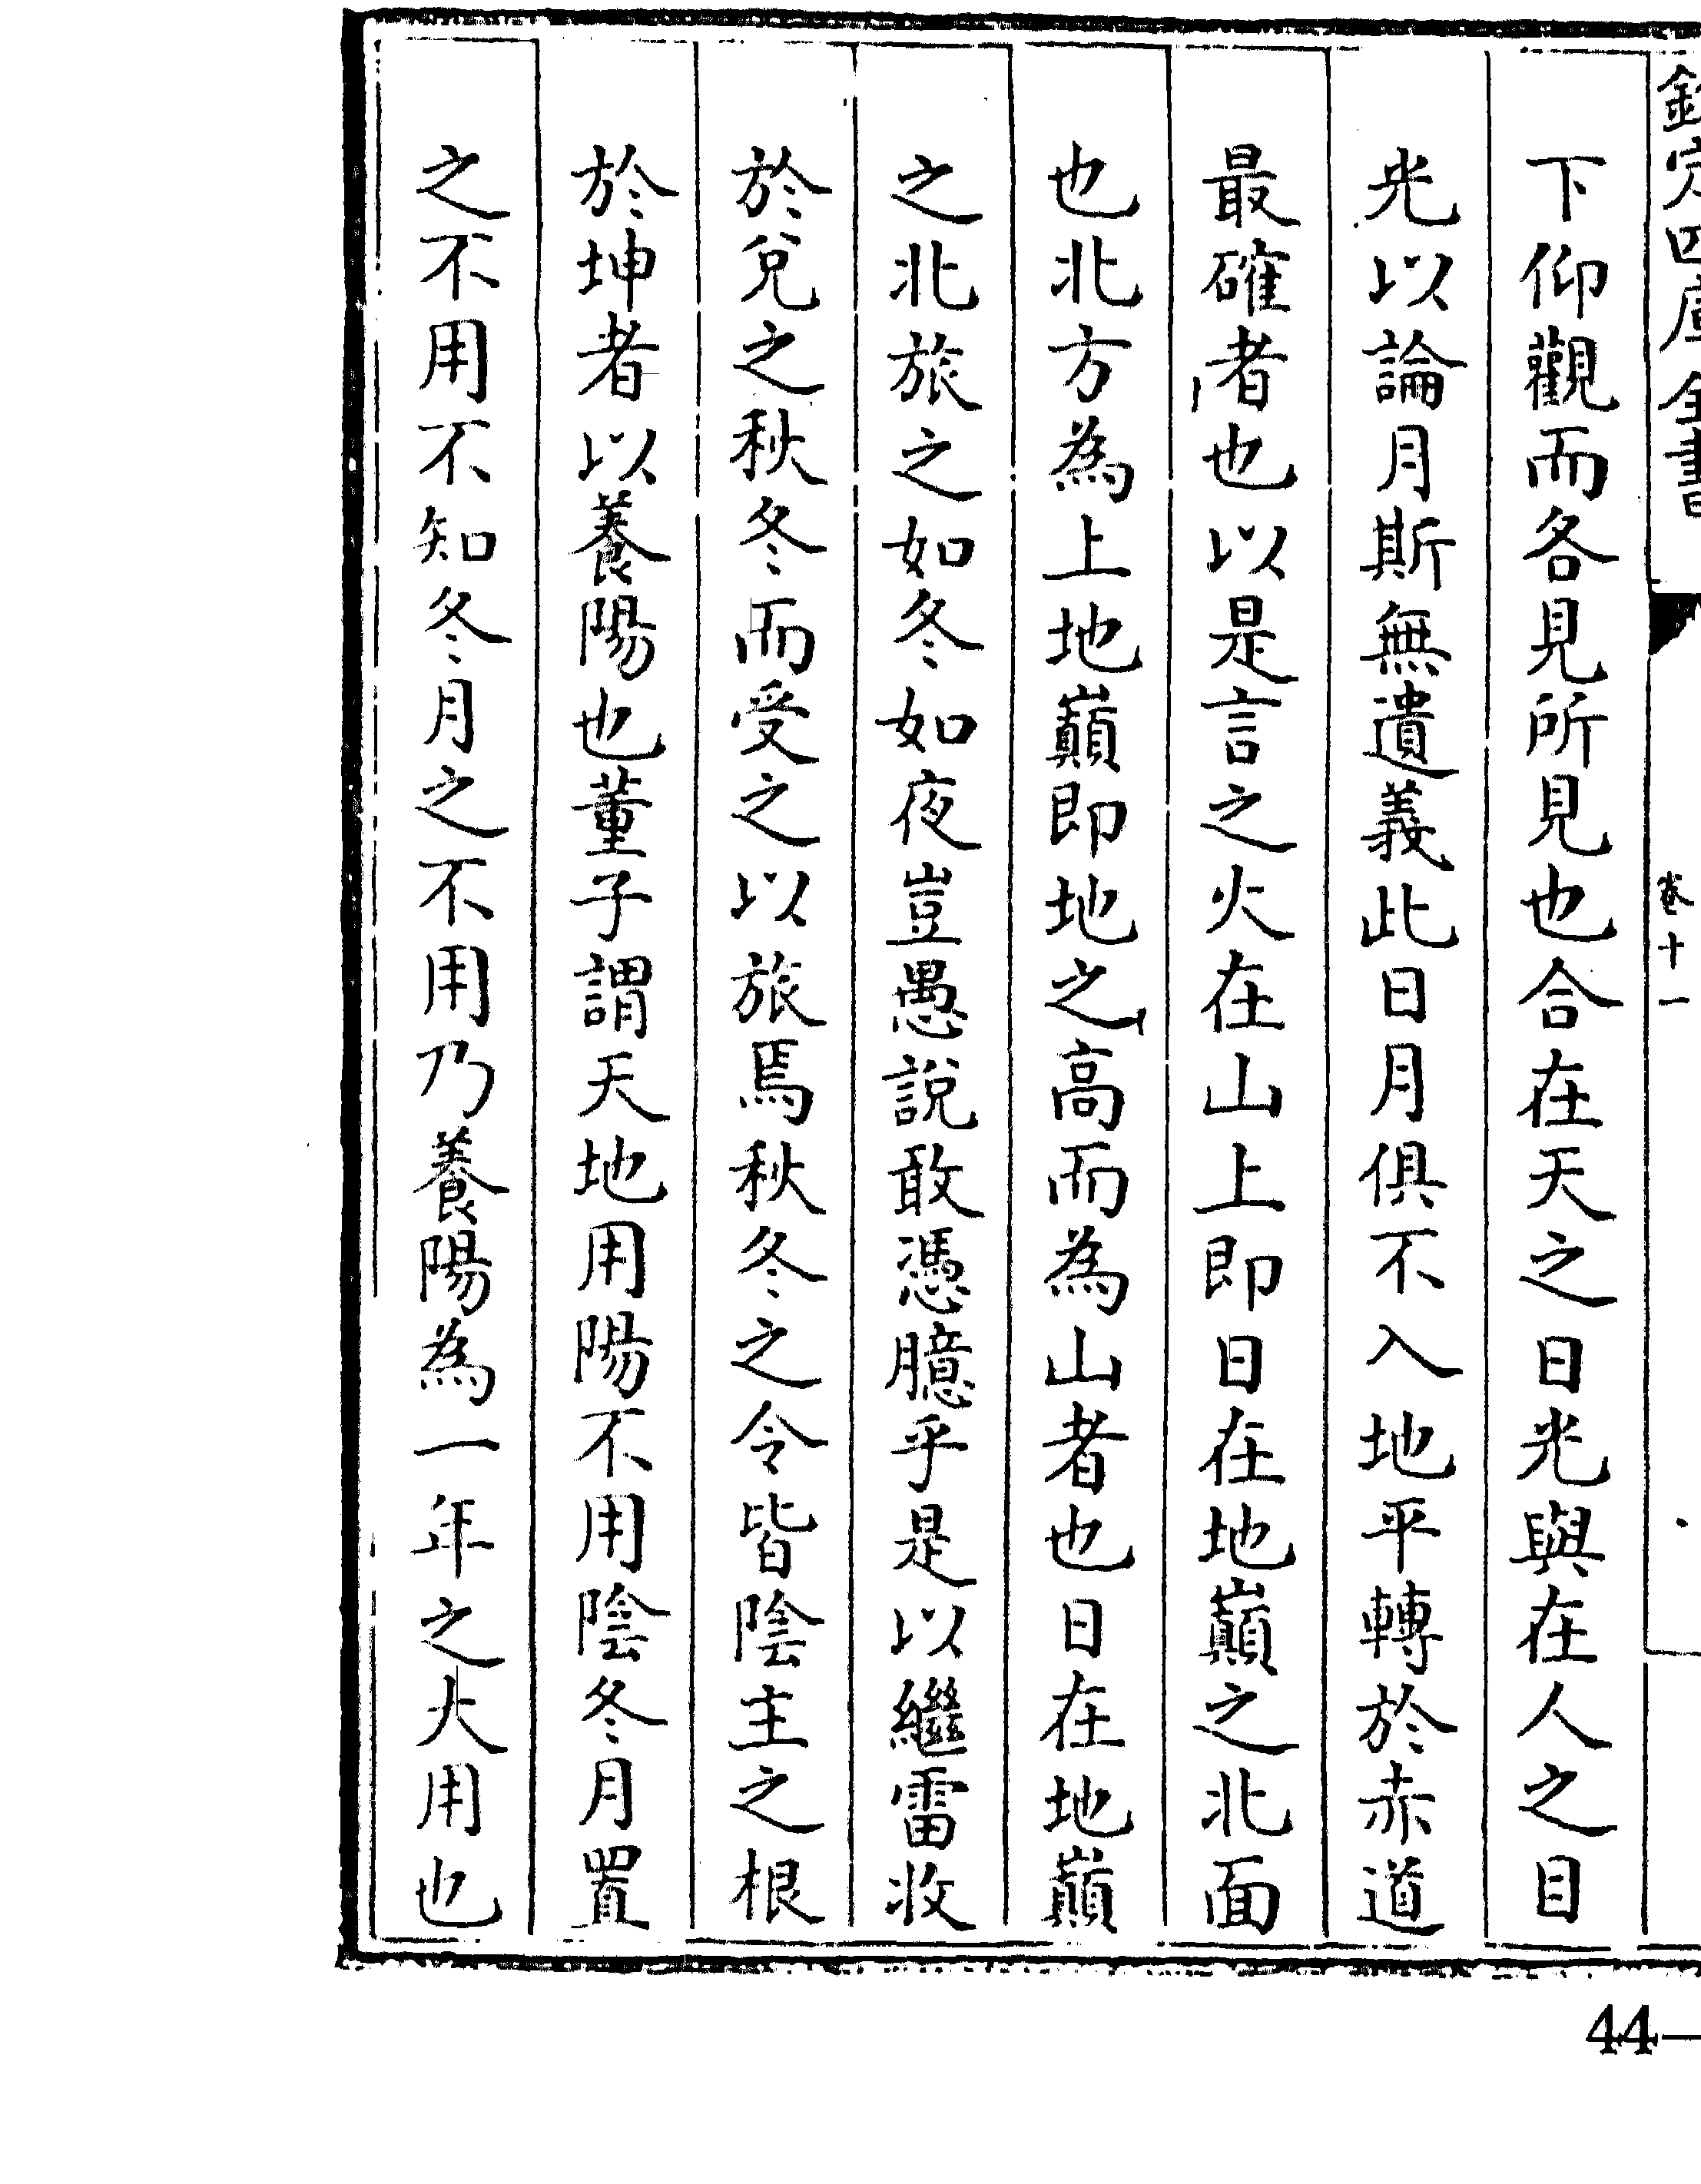 欽定四庫全書
卷十一
下仰觀而各見所見也合在天之日光與在人之目
光以論月斯無遺義此日月俱不入地平轉於赤道
最確者也以是言之火在山上即日在地巔之北面
也北方為上地巔即地之高而為山者也日在地巔
之北旅之如冬如夜豈愚說敢憑臆乎是以繼雷收
於兌之秋冬而受之以旅焉秋冬之令皆陰主之根
於坤者以養陽也董子謂天地用陽不用陰冬月置
之不用不知冬月之不用乃養陽為一年之大用也
44—